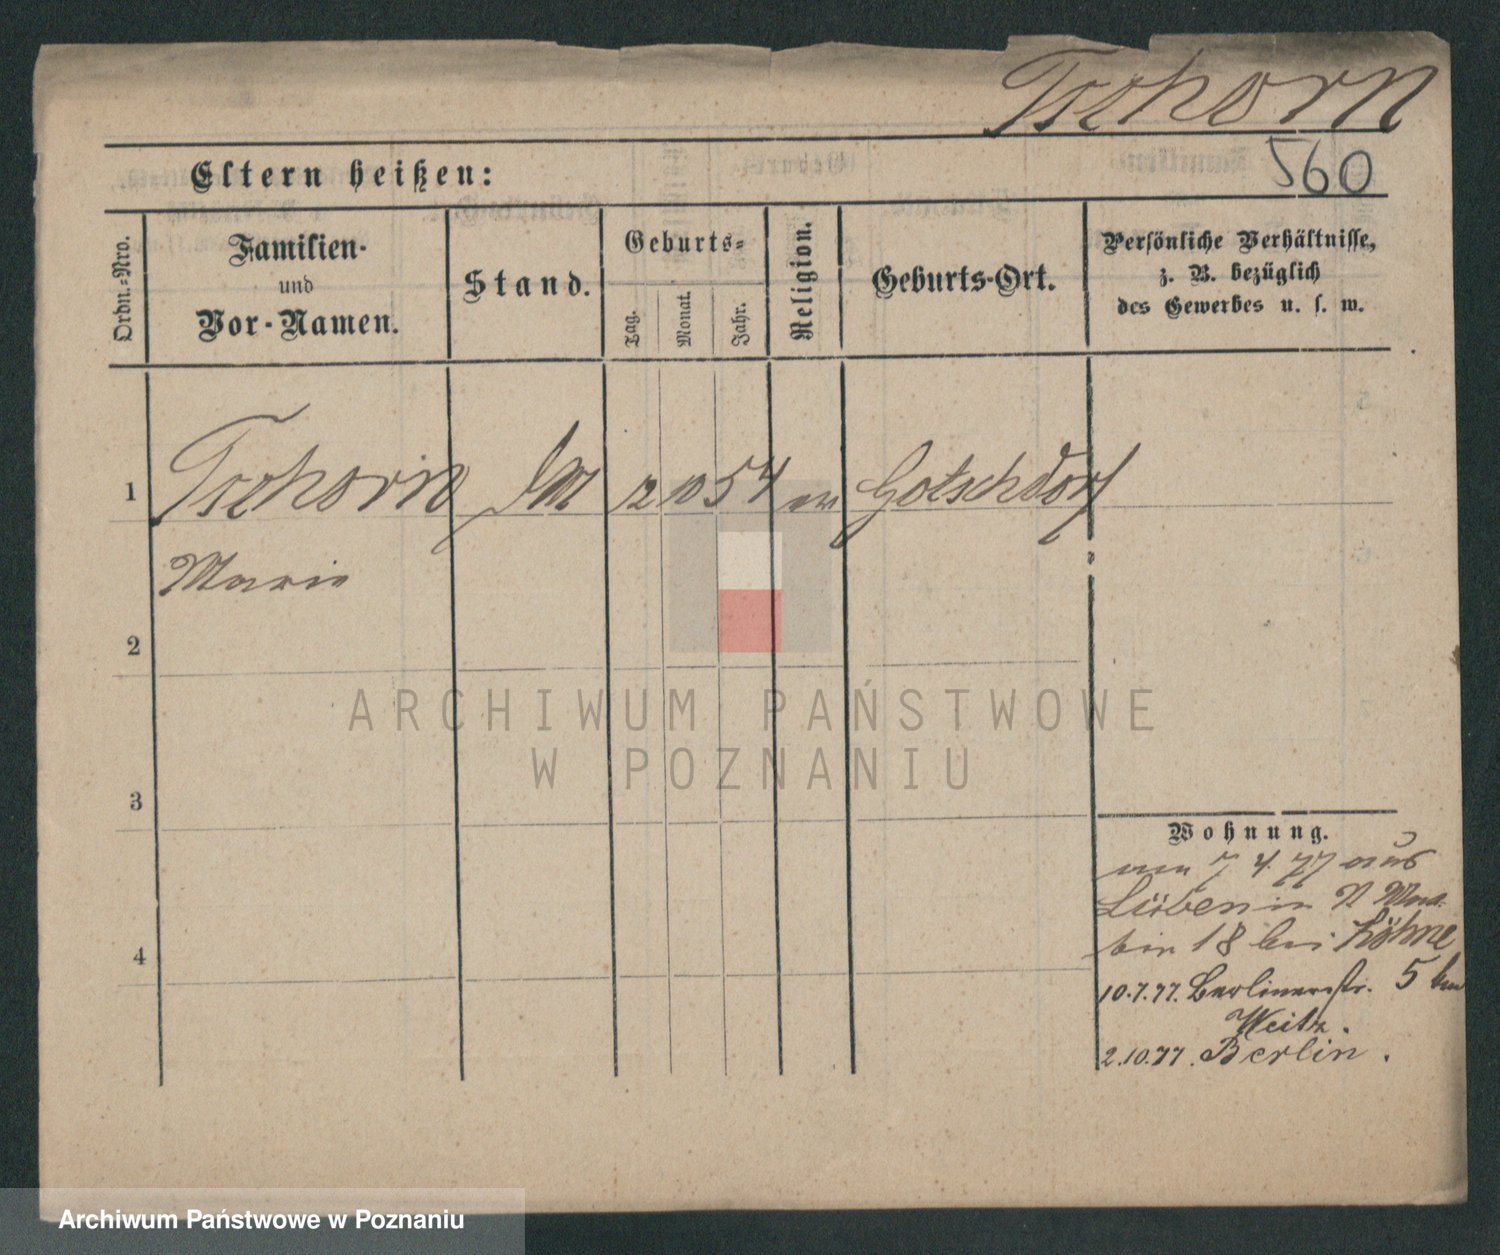 Tschorn
560
Eltern heißen:
Ordn.-Nro.
Familien-
und
Vor-Namen.
Stand.
Geburts-
Tag.
Monat.
Jahr.
Religion.
Geburts-Ort.
Persönliche Verhältnisse,
z. B. bezüglich
des Gewerbes u. s. w.
1 Tschorn 2 10 54 ev Gotschdorf
Marie
2
3
4
ARCHIWUM PAŃSTWOWE
W POZNANIU
Wohnung.
7 4 77 aus
Lüben in
18 bei Höhne
10.7.77. Berlinerstr. 5 bei
Weitz.
2.10.77. Berlin.
Archiwum Państwowe w Poznaniu